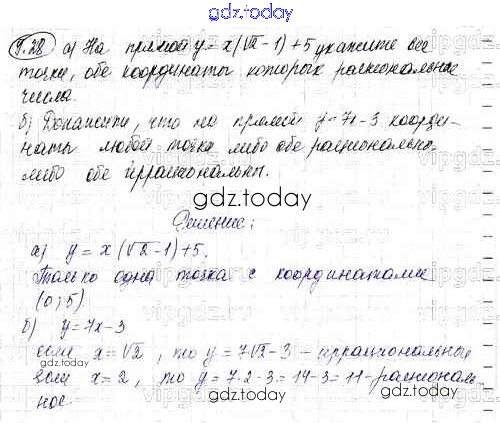 gdz.today
9.28 а) На прямой y = x(√2 - 1) + 5 укажите все
точки, обе координаты которых рациональные
числа.
б) Докажите, что на прямой y = 7x - 3 коорди-
наты любой точки либо обе рациональны
либо обе иррациональны.
gdz.today
Решение:
а) y = x(√2 - 1) + 5.
Только одна точка с координатами
(0; 5)
б) y = 7x - 3
если x = √2, то y = 7√2 - 3 - иррациональные
если x = 2, то y = 7·2 - 3 = 14 - 3 = 11 - рациональ-
ное.
gdz.today